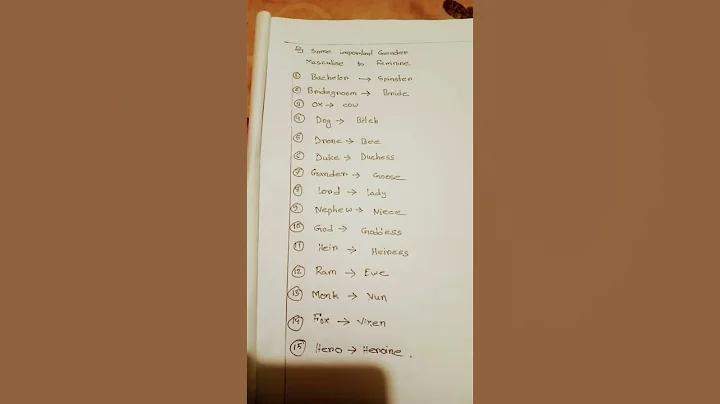 Some important Gender
Masculine to Feminine
① Bachelor → Spinster
② Bridegroom → Bride
③ Ox → cow
④ Dog → Bitch
⑤ Drone → Bee
⑥ Duke → Duchess
⑦ Gander → Goose
⑧ Lord → Lady
⑨ Nephew → Niece
⑩ God → Goddess
⑪ Heir → Heiress
⑫ Ram → Ewe
⑬ Monk → Nun
⑭ Fox → Vixen
⑮ Hero → Heroine.